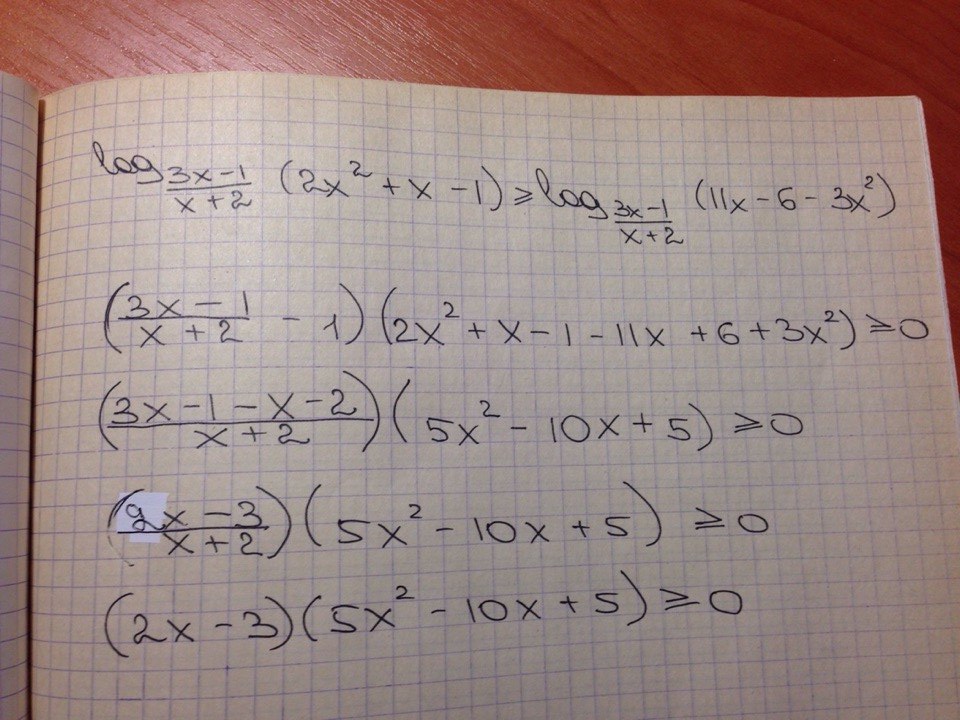 log_{\frac{3x-1}{x+2}} (2x² + x - 1) ⩾ log_{\frac{3x-1}{x+2}} (11x - 6 - 3x²)
(\frac{3x-1}{x+2} - 1)(2x² + x - 1 - 11x + 6 + 3x²) ⩾ 0
(\frac{3x-1-x-2}{x+2})(5x² - 10x + 5) ⩾ 0
(\frac{2x-3}{x+2})(5x² - 10x + 5) ⩾ 0
(2x - 3)(5x² - 10x + 5) ⩾ 0